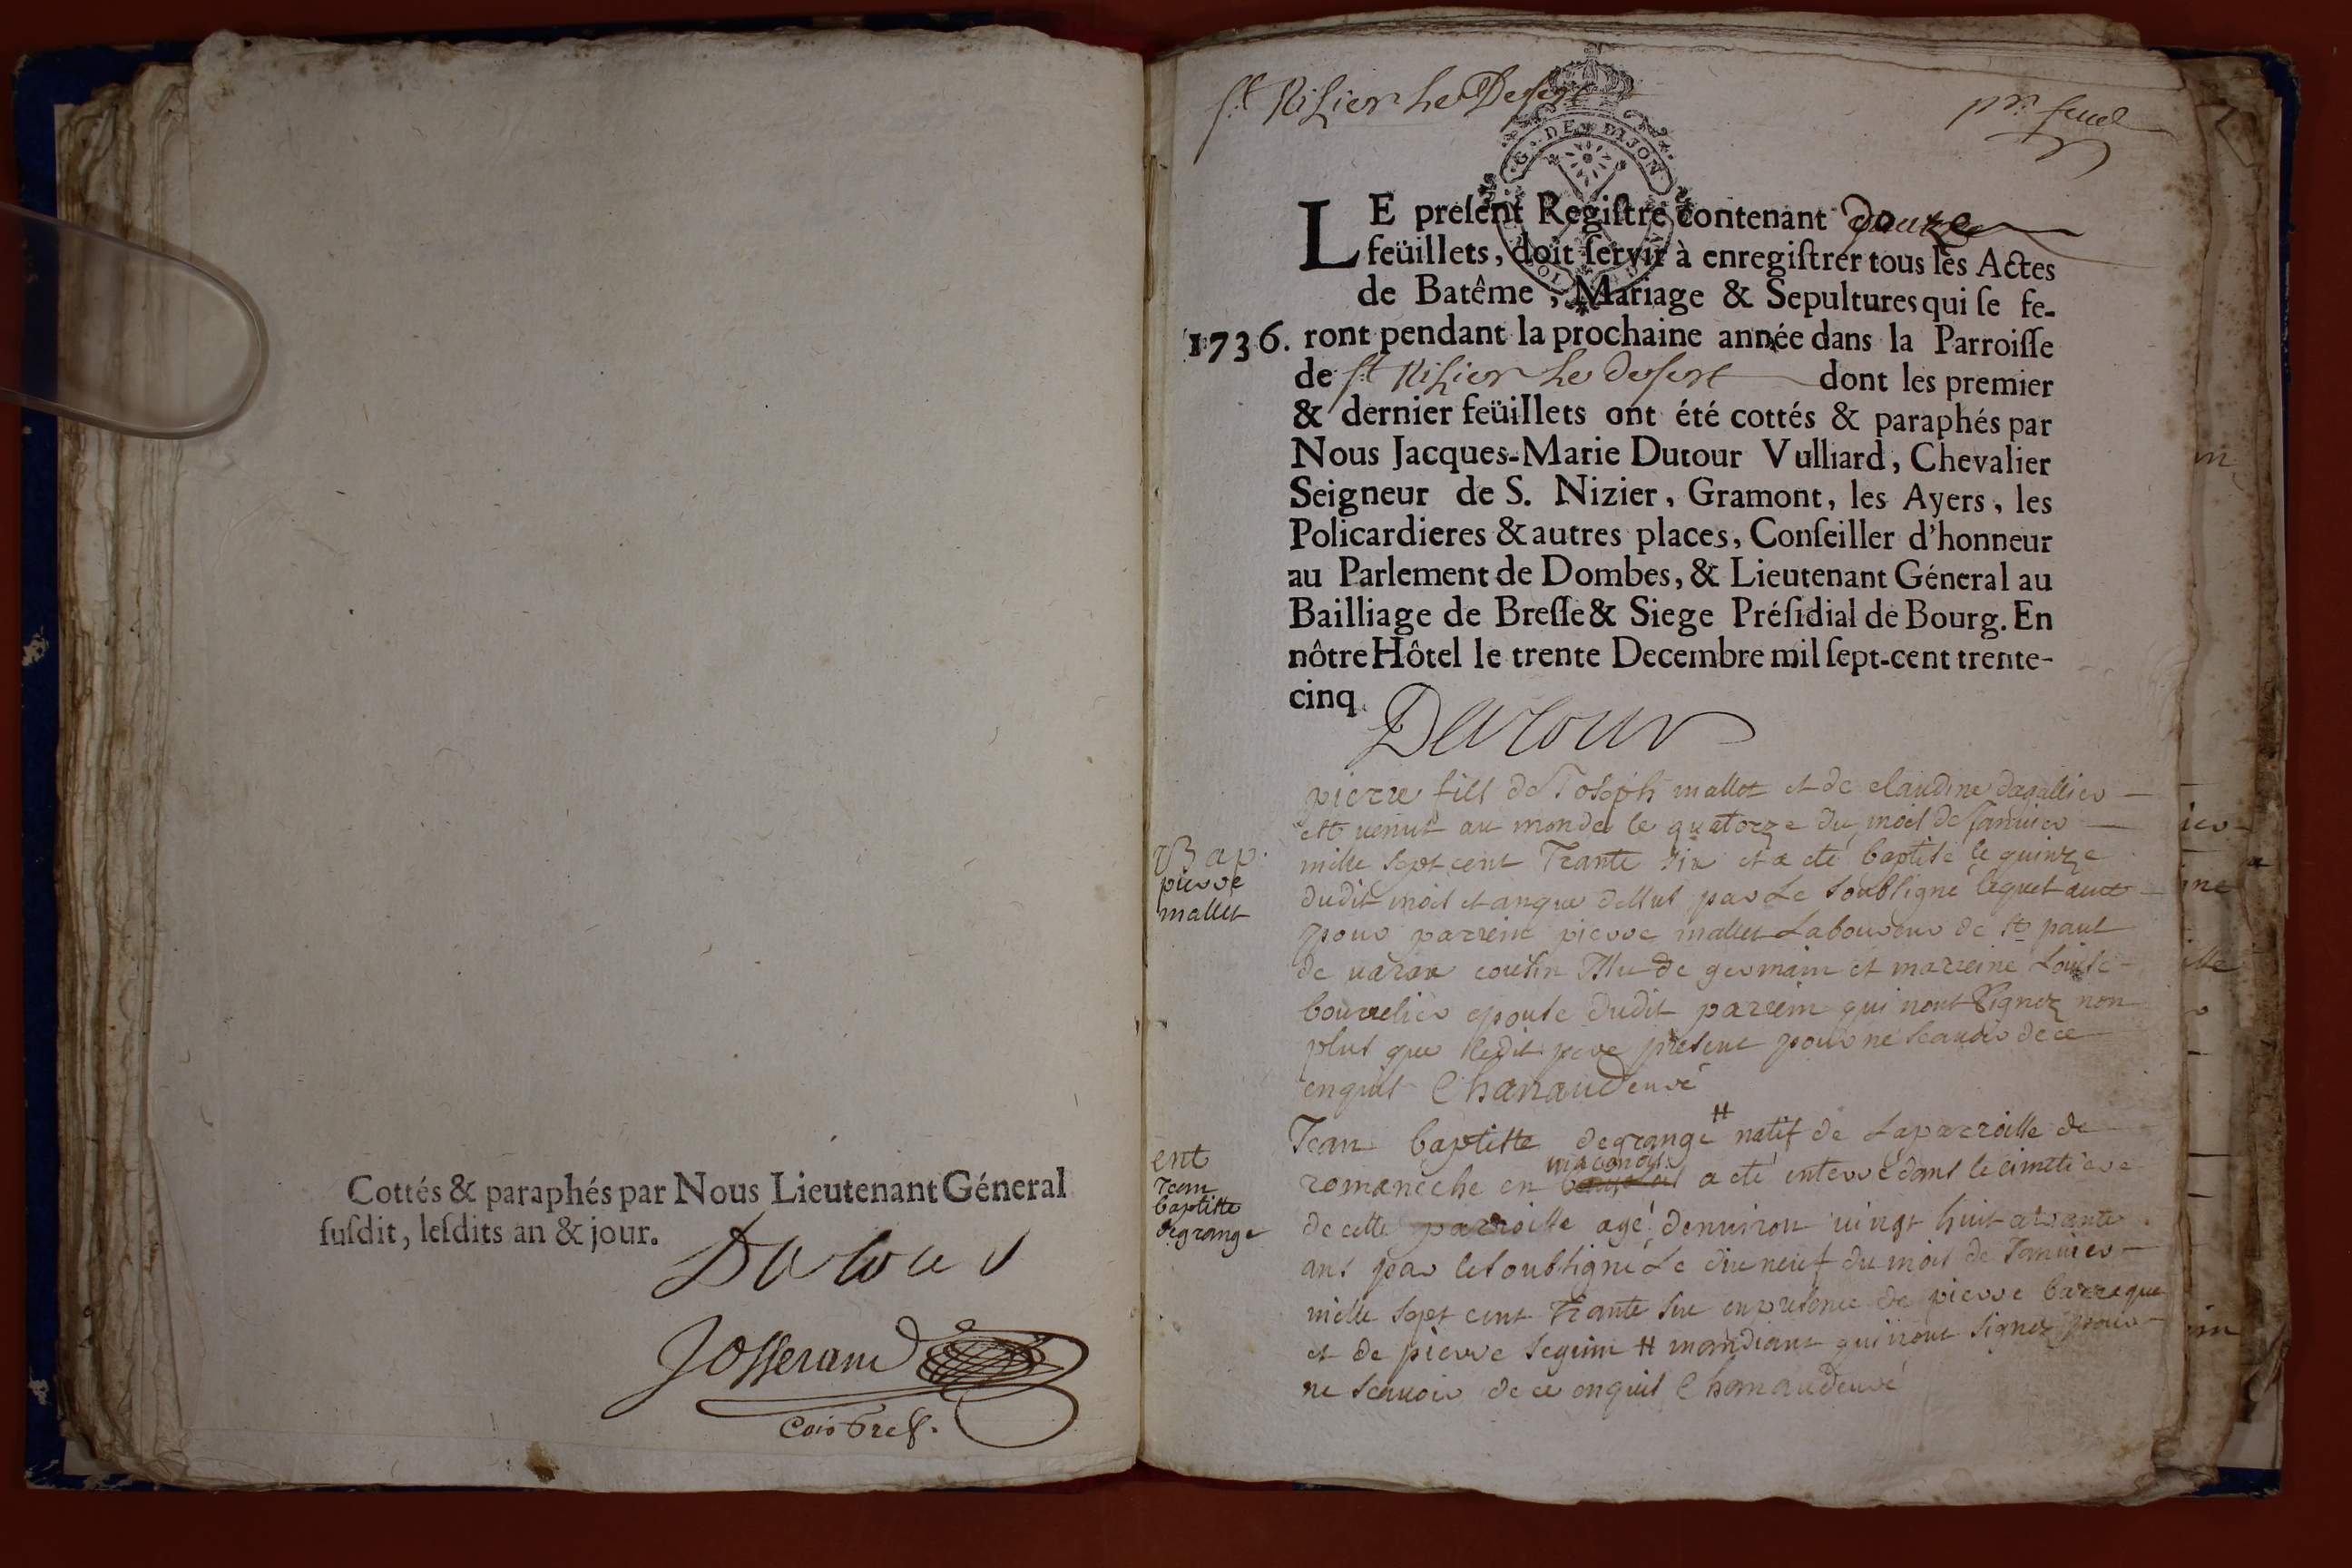 Cottés & paraphés par Nous Lieutenant Géneral
ſuſdit, leſdits an & jour.
Dutour
Josserand
St Nisier Le Desert
G. DE DIJON
LE preſent Regiſtre contenant douze
feüillets, doit ſervir à enregiſtrer tous les Actes
de Batême, Mariage & Sepultures qui ſe fe-
1736. ront pendant la prochaine année dans la Parroiſſe
de St Nisier Le desert dont les premier
& dernier feüillets ont été cottés & paraphés par
Nous Jacques-Marie Dutour Vulliard, Chevalier
Seigneur de S. Nizier, Gramont, les Ayers, les
Policardieres & autres places, Conſeiller d'honneur
au Parlement de Dombes, & Lieutenant Géneral au
Bailliage de Breſſe & Siege Préſidial de Bourg. En
nôtre Hôtel le trente Decembre mil ſept-cent trente-
cinq.
Dutour
Bap.
pierre
mallet
pierre fils de Joseph mallet et de claudine dagallier
est venut au monde le quatorze du mois de Januier
mille sept cent Trante six et a eté baptisé le quinze
dudit mois et anque dessus par Le soubsigné lequel
pour parrein pierre mallet Laboureur de st paul
de uarax cousin de germain et marreine Louise
bourrelier epouse dudit parrein qui nont signez non
plus que ledit pere present pour ne scauoir de ce
enquis Chanaud curé
ent
Jean
baptiste
degrange
Jean baptiste degrange # natif de Laparroisse de
romanéche en maconois a eté enterré dans le cimetiere
de cette parroisse agé denuiron uingt huit a trante
ans par lesoubsigné Le dixneuf du mois de Januier
mille sept cent Trante six en presence de pierre barraque
et de pierre seguin # mandiant qui nont signez pour
ne scauoir de ce enquis Chanaud curé